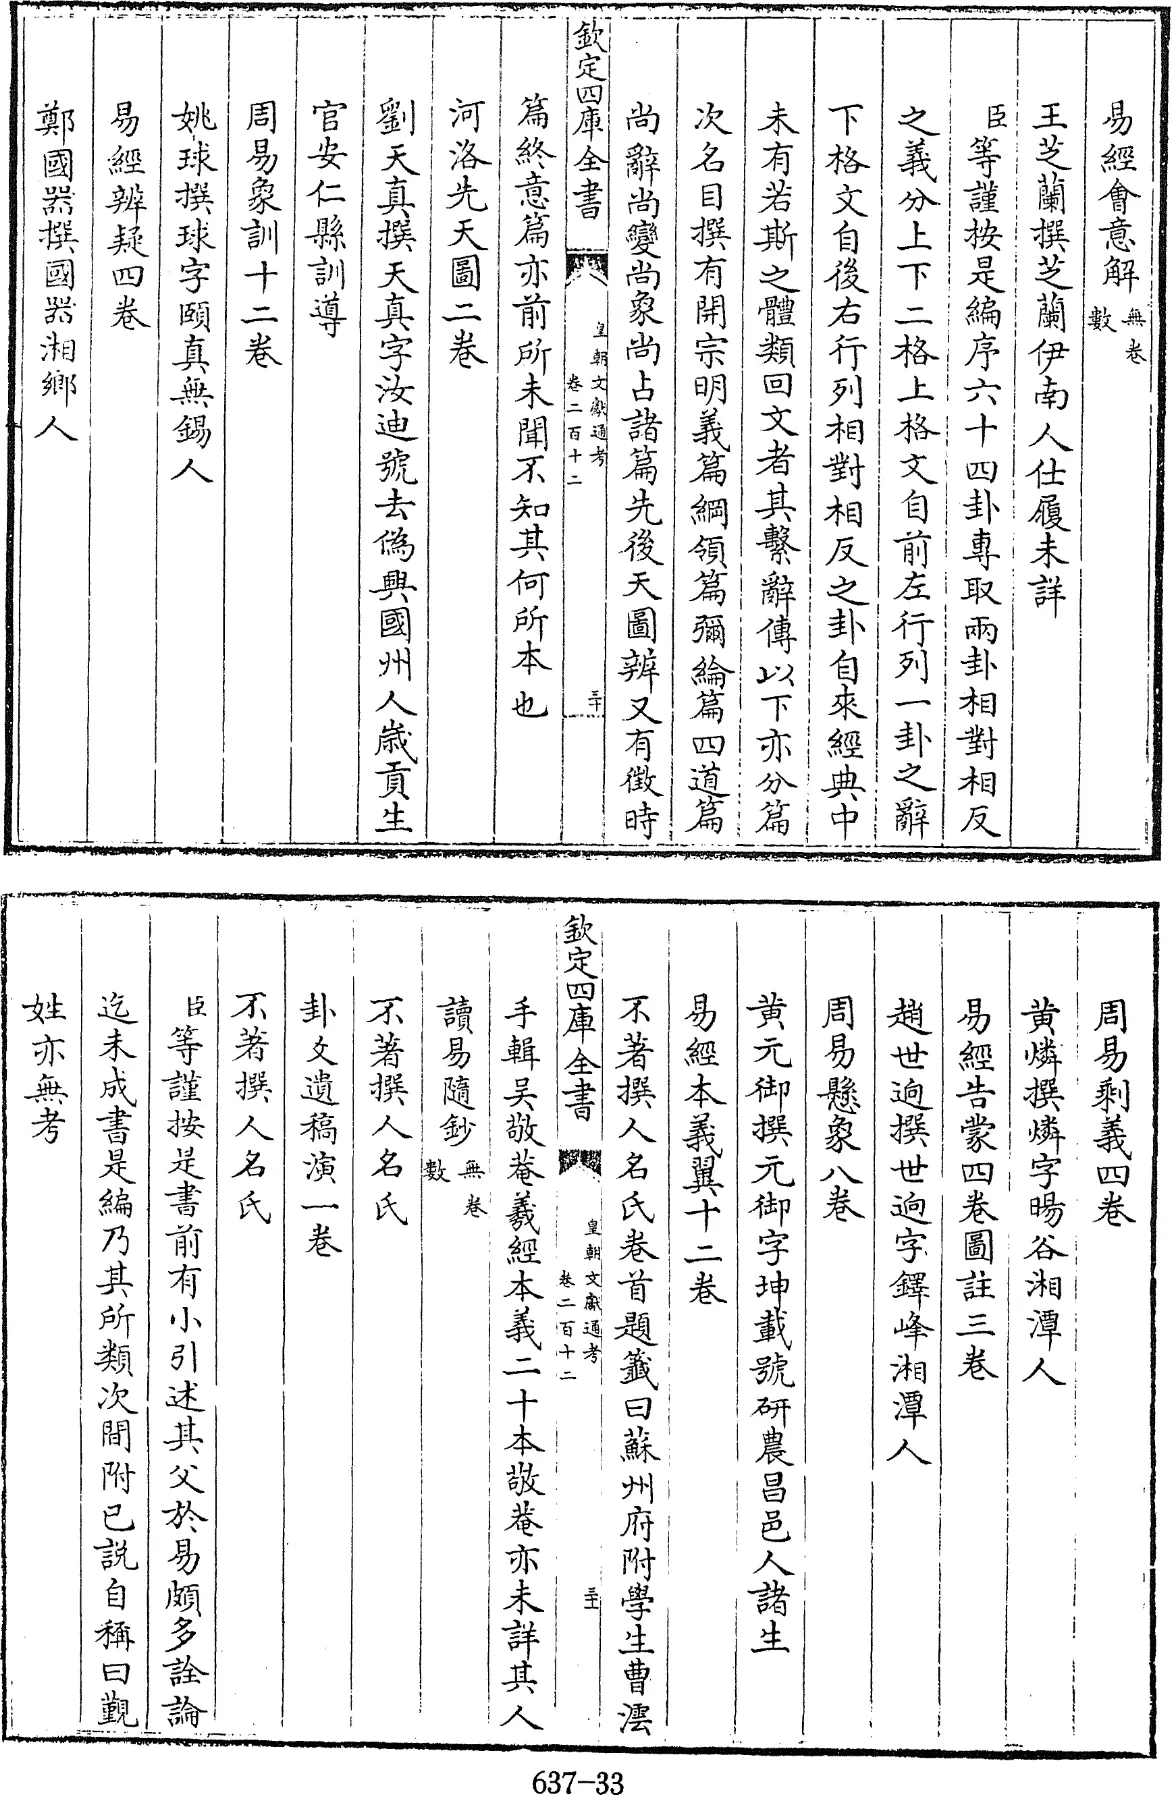 易經會意解無卷數
王芝蘭撰芝蘭伊南人仕履未詳
臣等謹按是編序六十四卦專取兩卦相對相反
之義分上下二格上格文自前左行列一卦之辭
下格文自後右行列相對相反之卦自來經典中
未有若斯之體類回文者其繫辭傳以下亦分篇
次名目撰有開宗明義篇綱領篇彌綸篇四道篇
尚辭尚變尚象尚占諸篇先後天圖辨又有徵時
欽定四庫全書 皇朝文獻通考卷二百十二 三十
篇終意篇亦前所未聞不知其何所本也
河洛先天圖二卷
劉天真撰天真字汝迪號去偽興國州人歲貢生
官安仁縣訓導
周易象訓十二卷
姚球撰球字頤真無錫人
易經辨疑四卷
鄭國器撰國器湘鄉人
周易剩義四卷
黄燐撰燐字暘谷湘潭人
易經告蒙四卷圖註三卷
趙世逈撰世逈字鐸峰湘潭人
周易懸象八卷
黄元御撰元御字坤載號研農昌邑人諸生
易經本義翼十二卷
不著撰人名氏卷首題籤曰蘇州府附學生曹澐
欽定四庫全書 皇朝文獻通考卷二百十二 三十一
手輯吴敬菴羲經本義二十本敬菴亦未詳其人
讀易隨鈔無卷數
不著撰人名氏
卦爻遺稿演一卷
不著撰人名氏
臣等謹按是書前有小引述其父於易頗多詮論
迄未成書是編乃其所類次間附已説自稱曰覲
姓亦無考
637-33